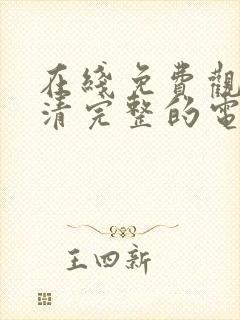 在綫免費觀
清完整的電
王四新